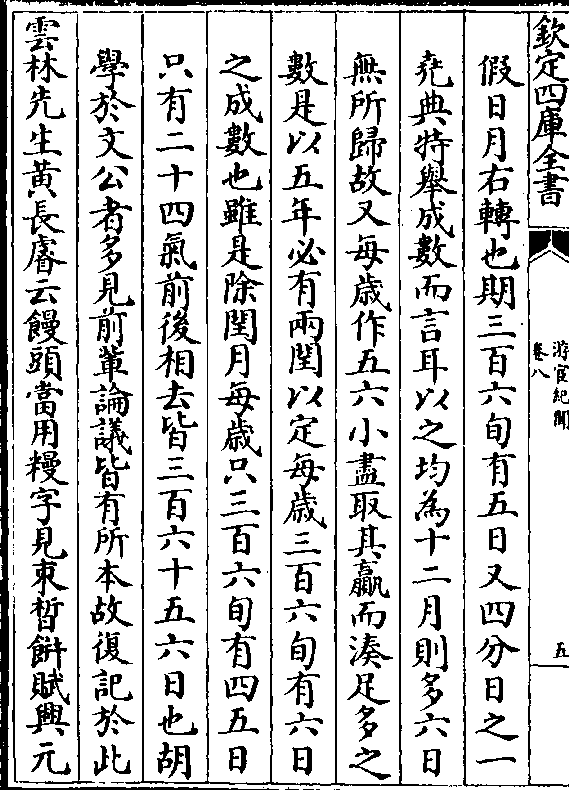 欽定四庫全書
游宦紀聞
卷八
五
假日月右轉也期三百六旬有五日又四分日之一
堯典特舉成數而言耳以之均為十二月則多六日
無所歸故又每歲作五六小盡取其贏而湊足多之
數是以五年必有兩閏以定每歲三百六旬有六日
之成數也雖是除閏月每歲只三百六旬有四五日
只有二十四氣前後相去皆三百六十五六日也胡
學於文公者多見前輩論議皆有所本故復記於此
雲林先生黃長睿云饅頭當用䊡字見束晳餅賦興元